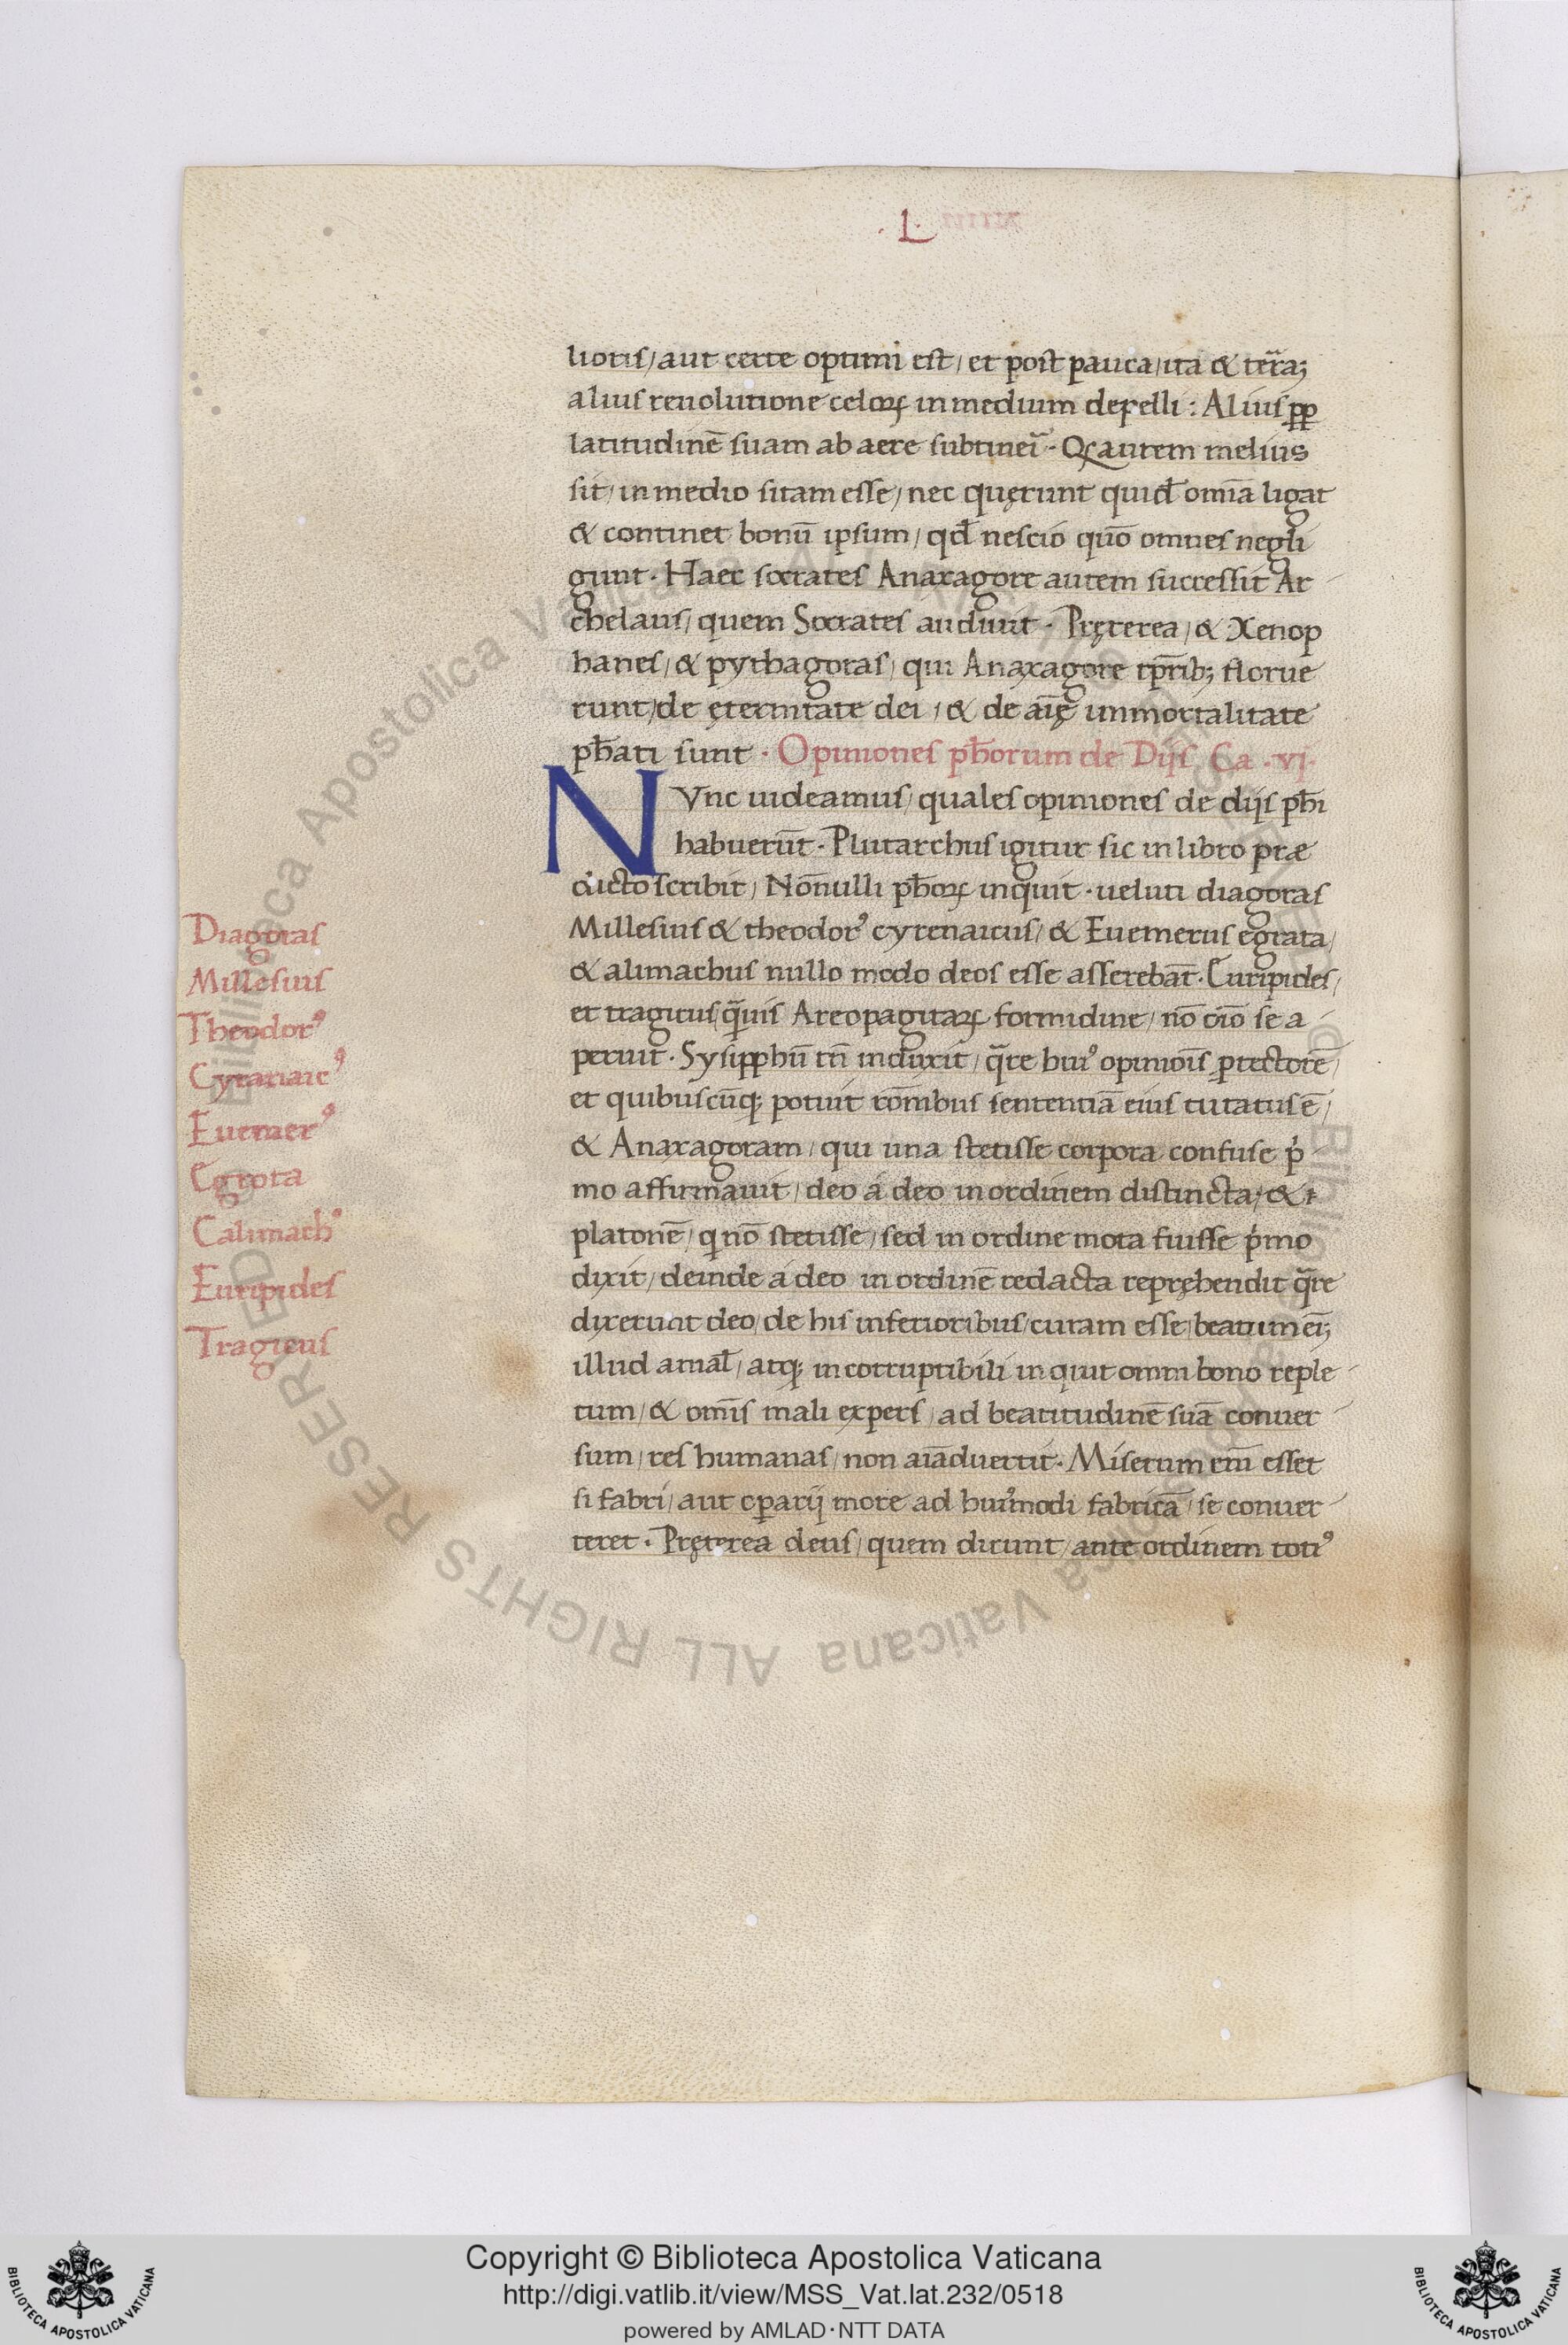 . L .
liotis/ aut certe optimi est/ et post pauca/ ita & terꝛa;
alius reuolutione celoꝝ in medium depelli : Alius pp̱
latitudinē suam ab aere subtineri · Qꝫ autem melius
sit/ in medio sitam esse/ nec quęrunt quid omīa ligat
& continet bonū ipsum/ qđ nescio quō omnes negli
gunt · Haec socrates Anaxagore autem successit Ar
chelaus/ quem Socrates audiuit · Pręterea/ & Xenop
hanes/ & pythagoras/ qui Anaxagore tp̄rib; florue
runt/ de ęternitate dei / & de aīę immortalitate
ph̄ati sunt · Opiniones ph̄orum de Dijs Ca . vj.
NVnc uideamus/ quales opiniones de dijs ph̄i
habuerūt · Plutarchus igitur sic in libro præ
dicto scribit/ Nōnulli ph̄oꝝ inquit · ueluti diagoras
Millesius & theodorꝰ cyrenaicus/ & Euemerus egrata/
& alimachus nullo modo deos esse asserebāt · Euripides/
et tragicus/ qͣuis Areopagitaꝝ formidine/ nō oīo se a
peruit · Sysipphū tn̄ induxit/ qͣre huiꝰ opinioīs ꝓtectore/
et quibuscūqꝫ potuit rōnibus sententiā eius tutatus ē/
& Anaxagoram/ qui una stetisse corpora confuse pͥ
mo affirmauit/ deo á deo in ordinem distincta/ &
platonē/ qͥ nō stetisse/ sed in ordine mota fuisse pͥmo
dixit/ deinde á deo in ordinē redacta repręhendit qͣre
dixerunt deo/ de his inferioribus/ curam esse/ beatum ei;
illud atqꝫ incorruptibili inquit omni bono reple
tum/ & omīs mali expers/ ad beatitudinē suā conuer
sum/ res humanas/ non aīaduertit · Miserum eīm esset
si fabri/ aut oꝑarij more ad huiꝰmodi fabricā/ se conuer
teret · Pręterea deus/ quem dicunt/ ante ordinem totiꝰ
Diagoras
Millesius
Theodorꝰ
Cyranaicꝰ
Euemerꝰ
Egrota
Calimachꝰ
Euripides
Tragicus
Copyright © Biblioteca Apostolica Vaticana
http://digi.vatlib.it/view/MSS_Vat.lat.232/0518
powered by AMLAD·NTT DATA
BIBLIOTECA APOSTOLICA VATICANA
BIBLIOTECA APOSTOLICA VATICANA
© Biblioteca Apostolica Vaticana ALL RIGHTS RESERVED